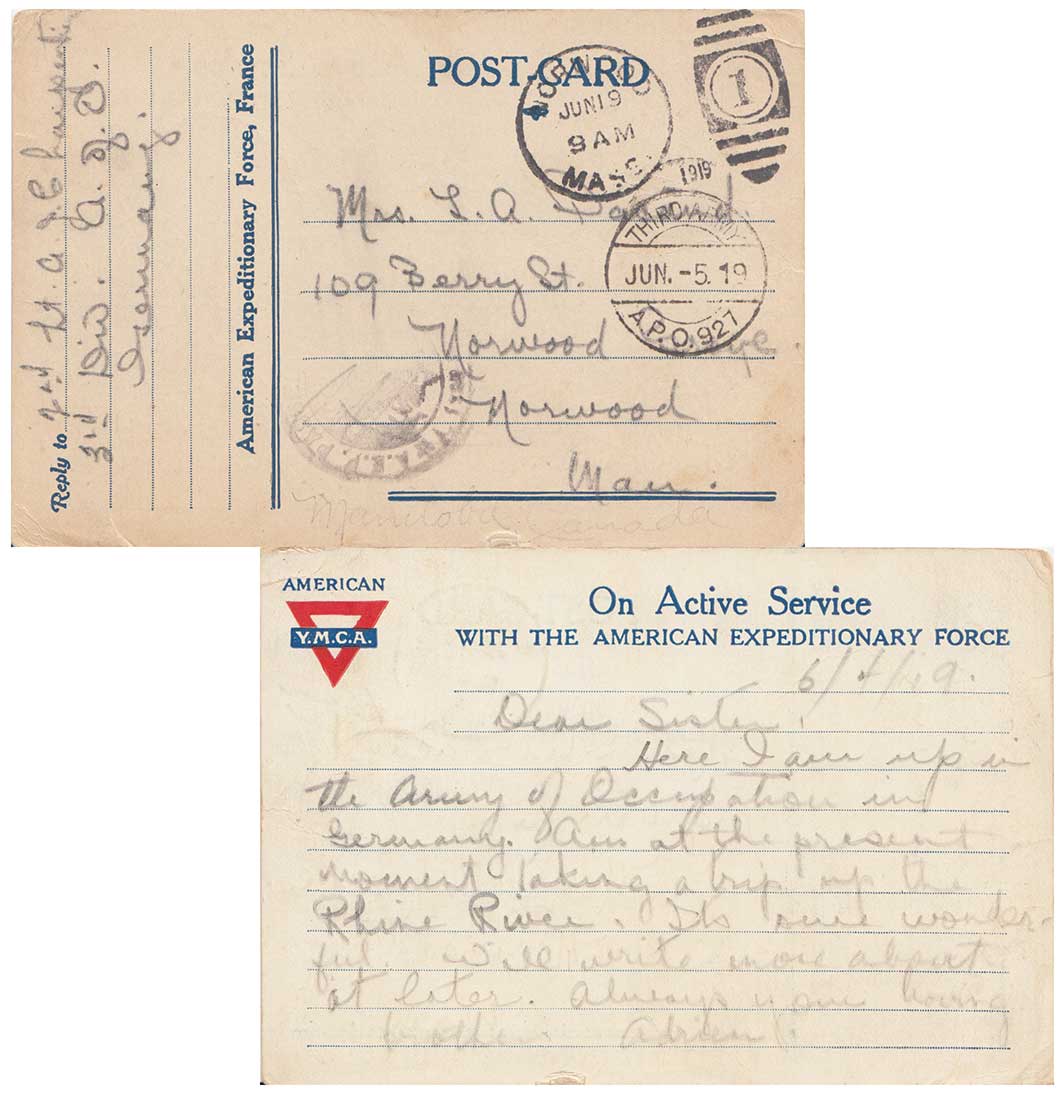 POST-CARD
NORWOOD
JUN 19
9 AM
MASS.
1919
1
THIRD ARMY
JUN. -5. 19
A.P.O. 927
Mrs. L. A.
109 Berry St.
Norwood
Norwood
Man.
Manitoba Canada
Reply to 2nd Lt. A. J.
3rd Div. A. of O.
Germany.
American Expeditionary Force, France
AMERICAN
Y.M.C.A.
On Active Service
WITH THE AMERICAN EXPEDITIONARY FORCE
6/4/19.
Dear Sister,
Here I am up in
the Army of Occupation in
Germany. Am at the present
moment taking a trip up the
Rhine River. Its sure wonder-
ful. Will write more about
it later. Always your loving
brother. Adrien